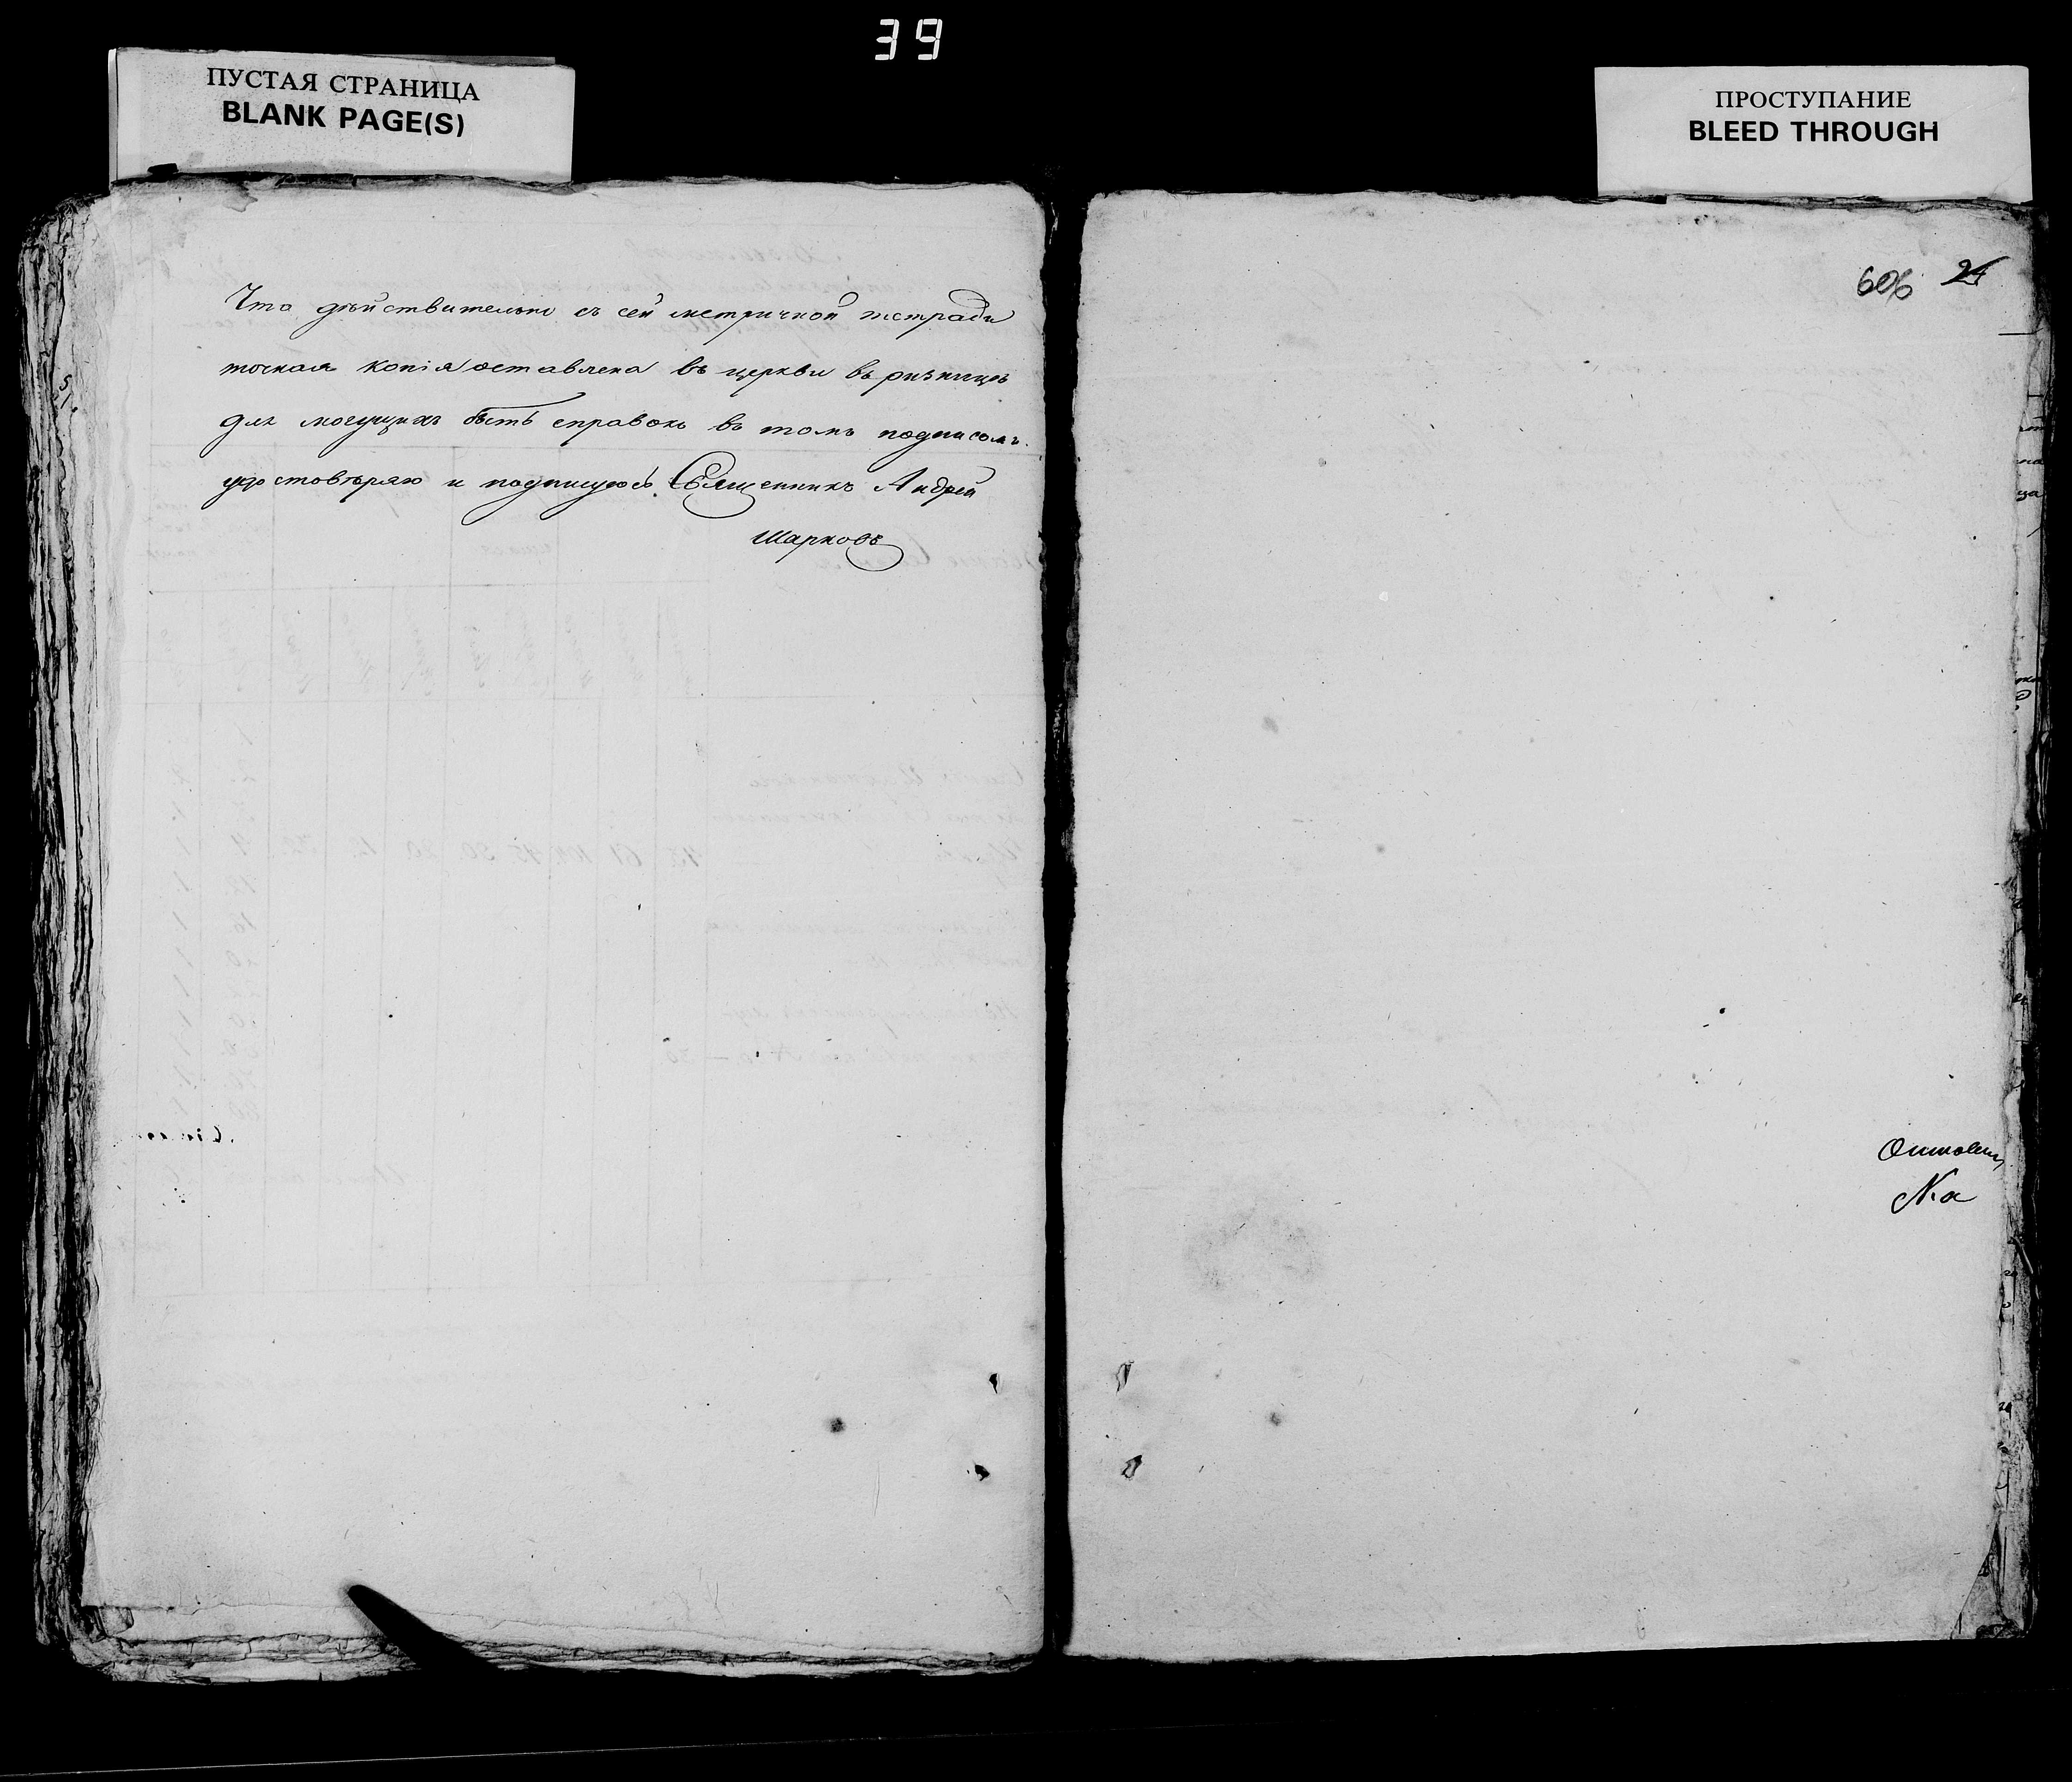 39
ПУСТАЯ СТРАНИЦА
BLANK PAGE(S)
ПРОСТУПАНИЕ
BLEED THROUGH
606 24
Что дѣйствительно съ сей метричной тетради
точная копія оставлена въ церкви въ ризницѣ
для могущихъ быть справокъ въ томъ подписомъ
удостовѣряю и подпишуюсь Священникъ Андрей
Шарковъ